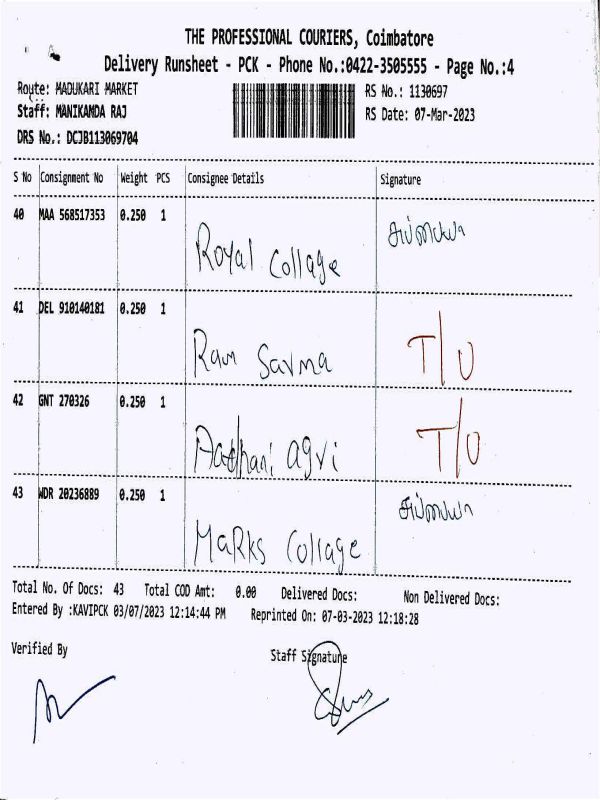 THE PROFESSIONAL COURIERS, Coimbatore
Delivery Runsheet - PCK - Phone No.:0422-3505555 - Page No.:4
Route: MADUKARI MARKET
RS No.: 1130697
Staff: MANIKANDA RAJ
RS Date: 07-Mar-2023
DRS No.: DCJB113069704
S No Consignment No Weight PCS Consignee Details Signature
40 MAA 568517353 0.250 1
Royal Collage
41 DEL 910140181 0.250 1
Ram Savma T/U
42 GNT 270326 0.250 1
agri T/U
43 WDR 20236889 0.250 1
Marks Collage
Total No. Of Docs: 43 Total COD Amt: 0.00 Delivered Docs: Non Delivered Docs:
Entered By :KAVIPCK 03/07/2023 12:14:44 PM Reprinted On: 07-03-2023 12:18:28
Verified By
Staff Signature